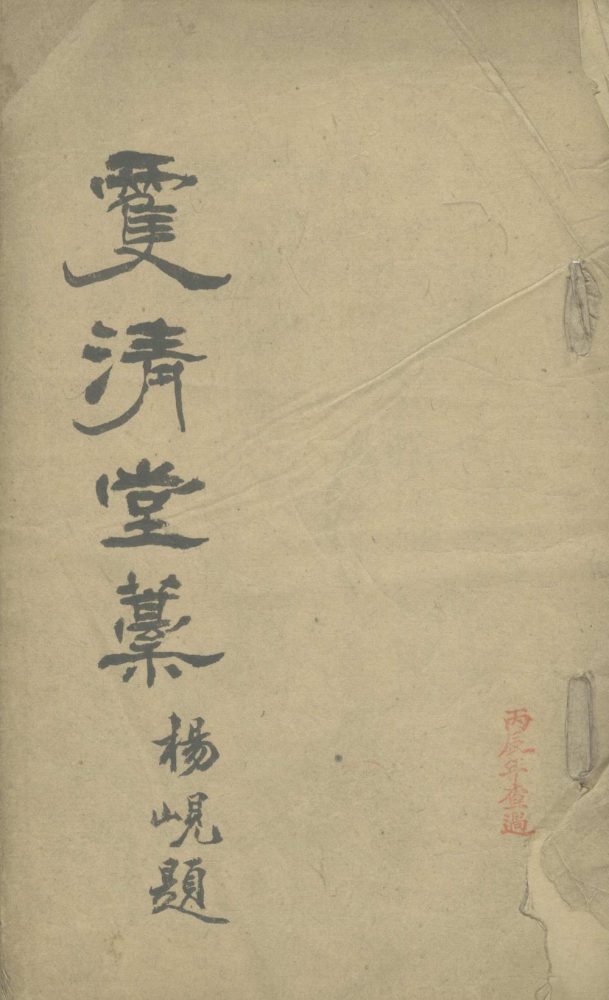 丙辰年查過
䨇清堂藁
楊峴題